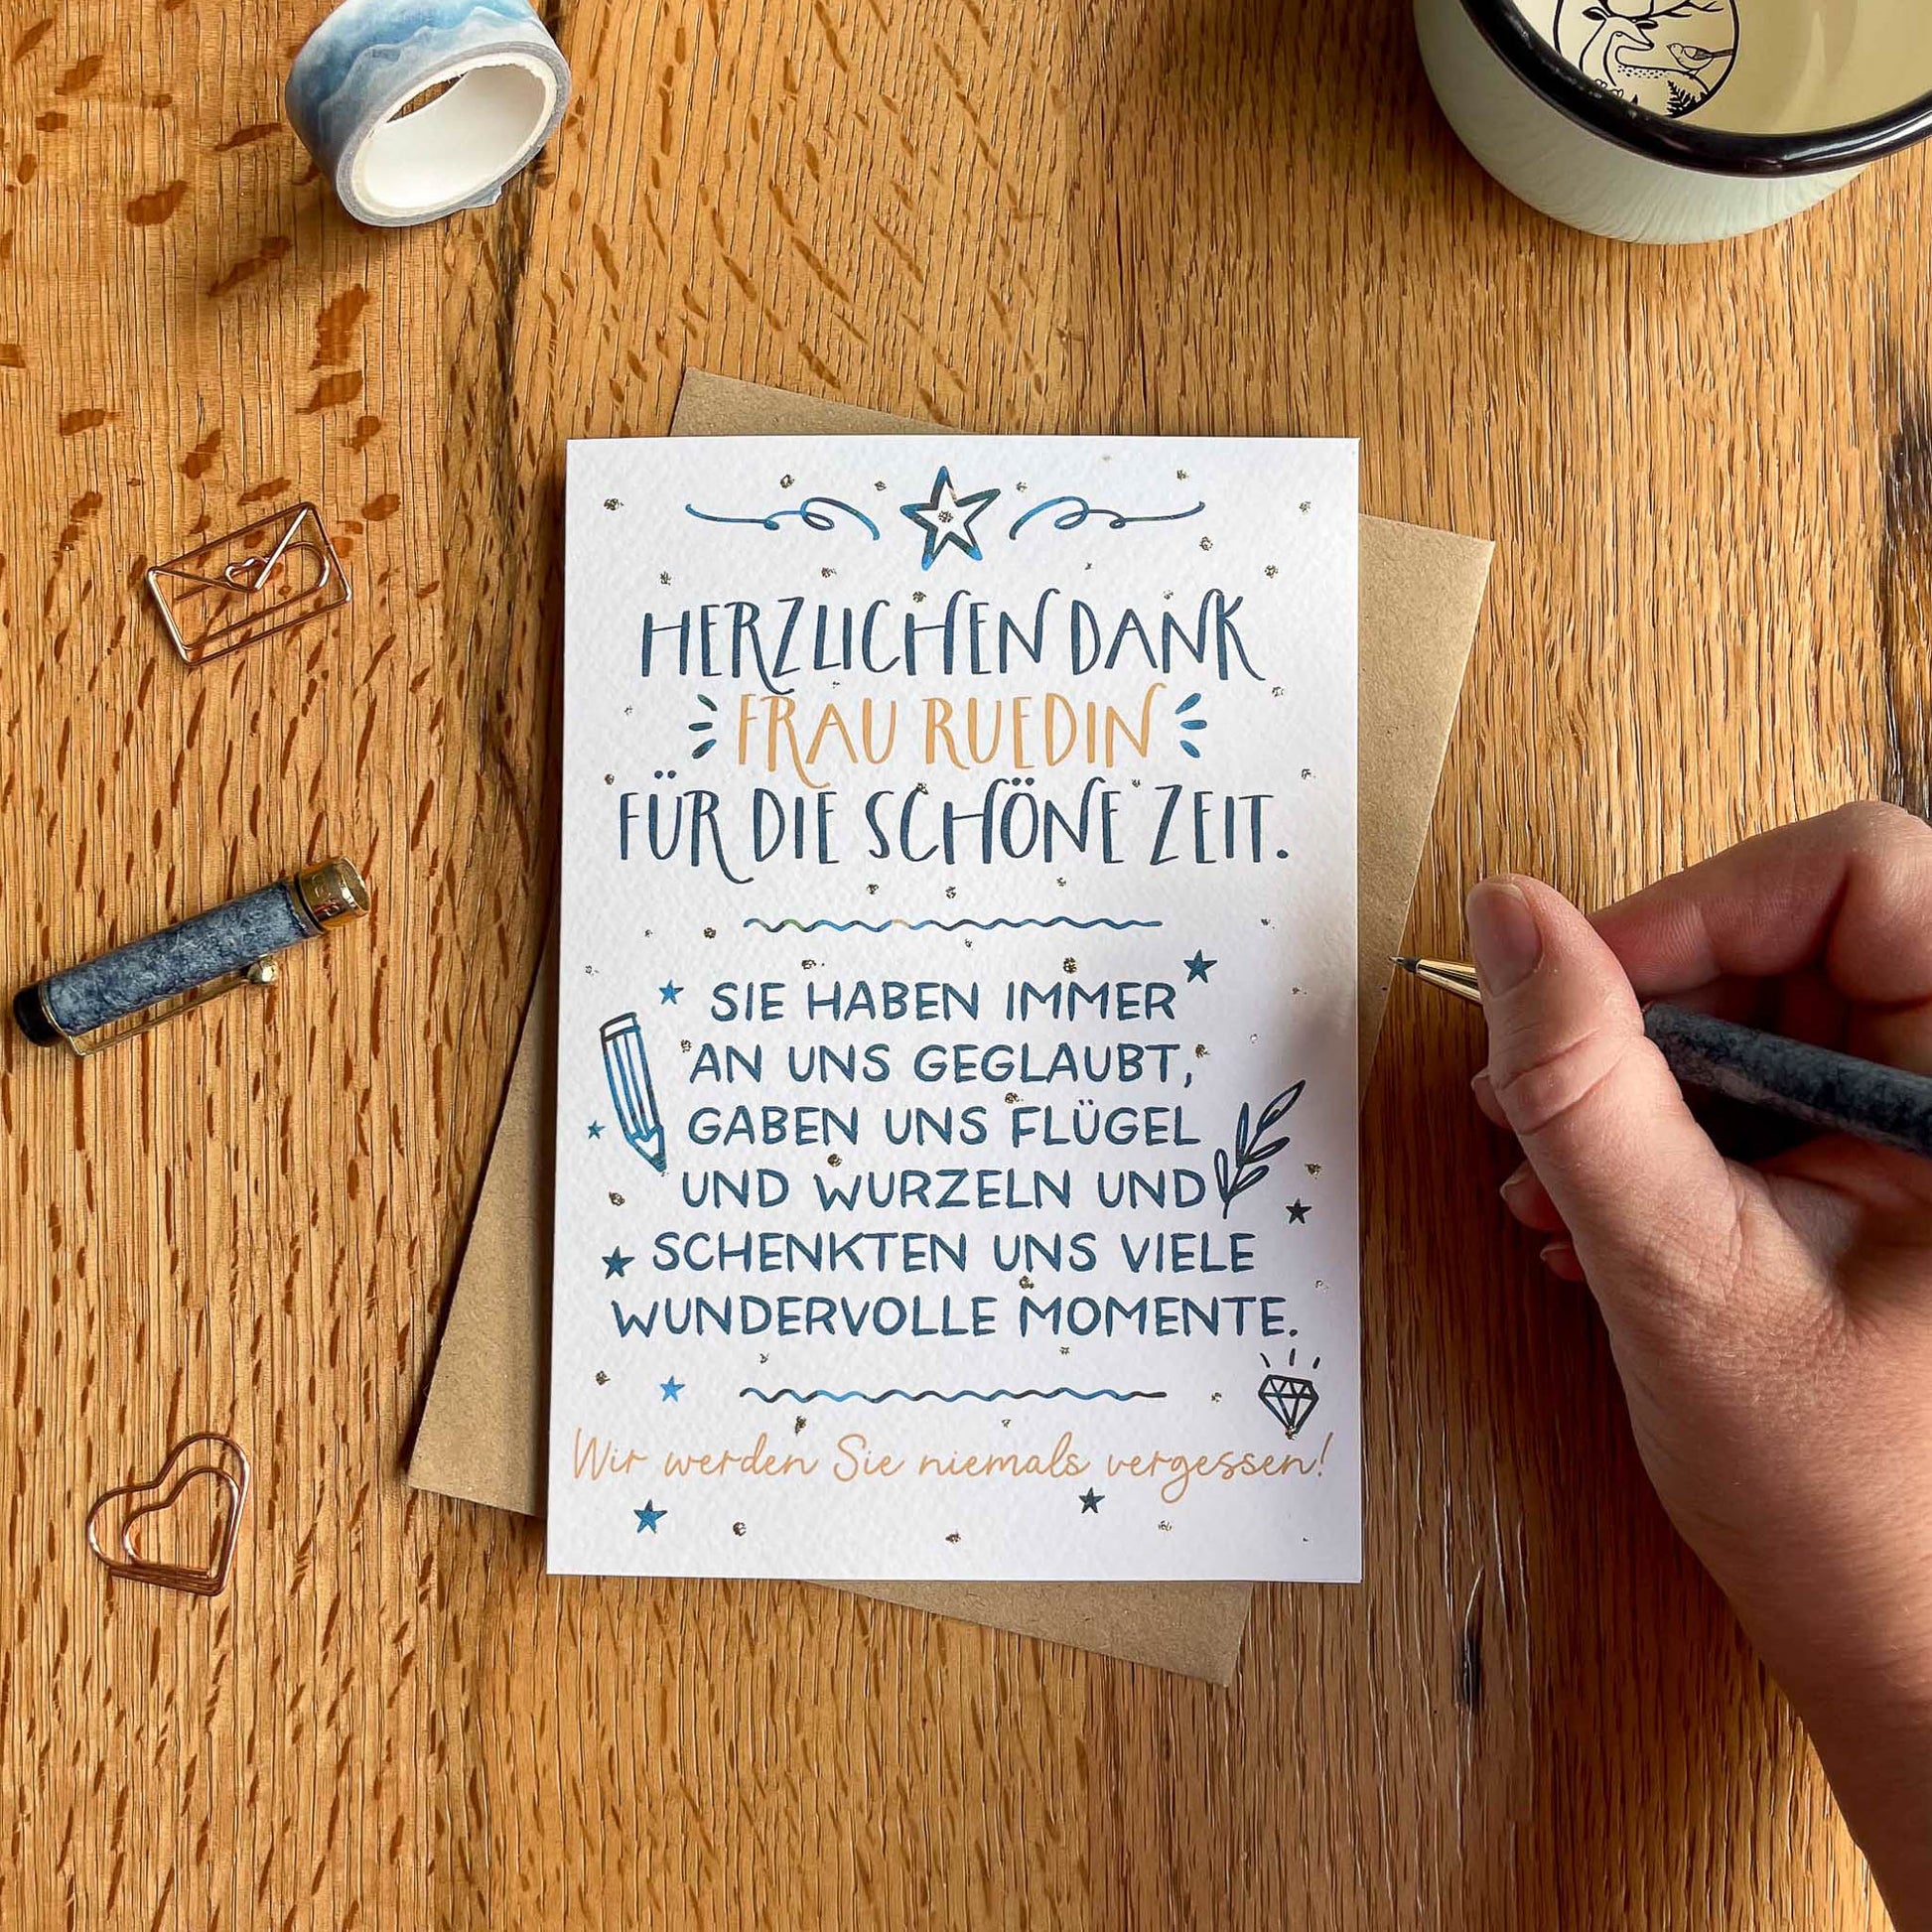 HERZLICHEN DANK
FRAU RUEDIN
FÜR DIE SCHÖNE ZEIT.
SIE HABEN IMMER
AN UNS GEGLAUBT,
GABEN UNS FLÜGEL
UND WURZELN UND
SCHENKTEN UNS VIELE
WUNDERVOLLE MOMENTE.
Wir werden Sie niemals vergessen!